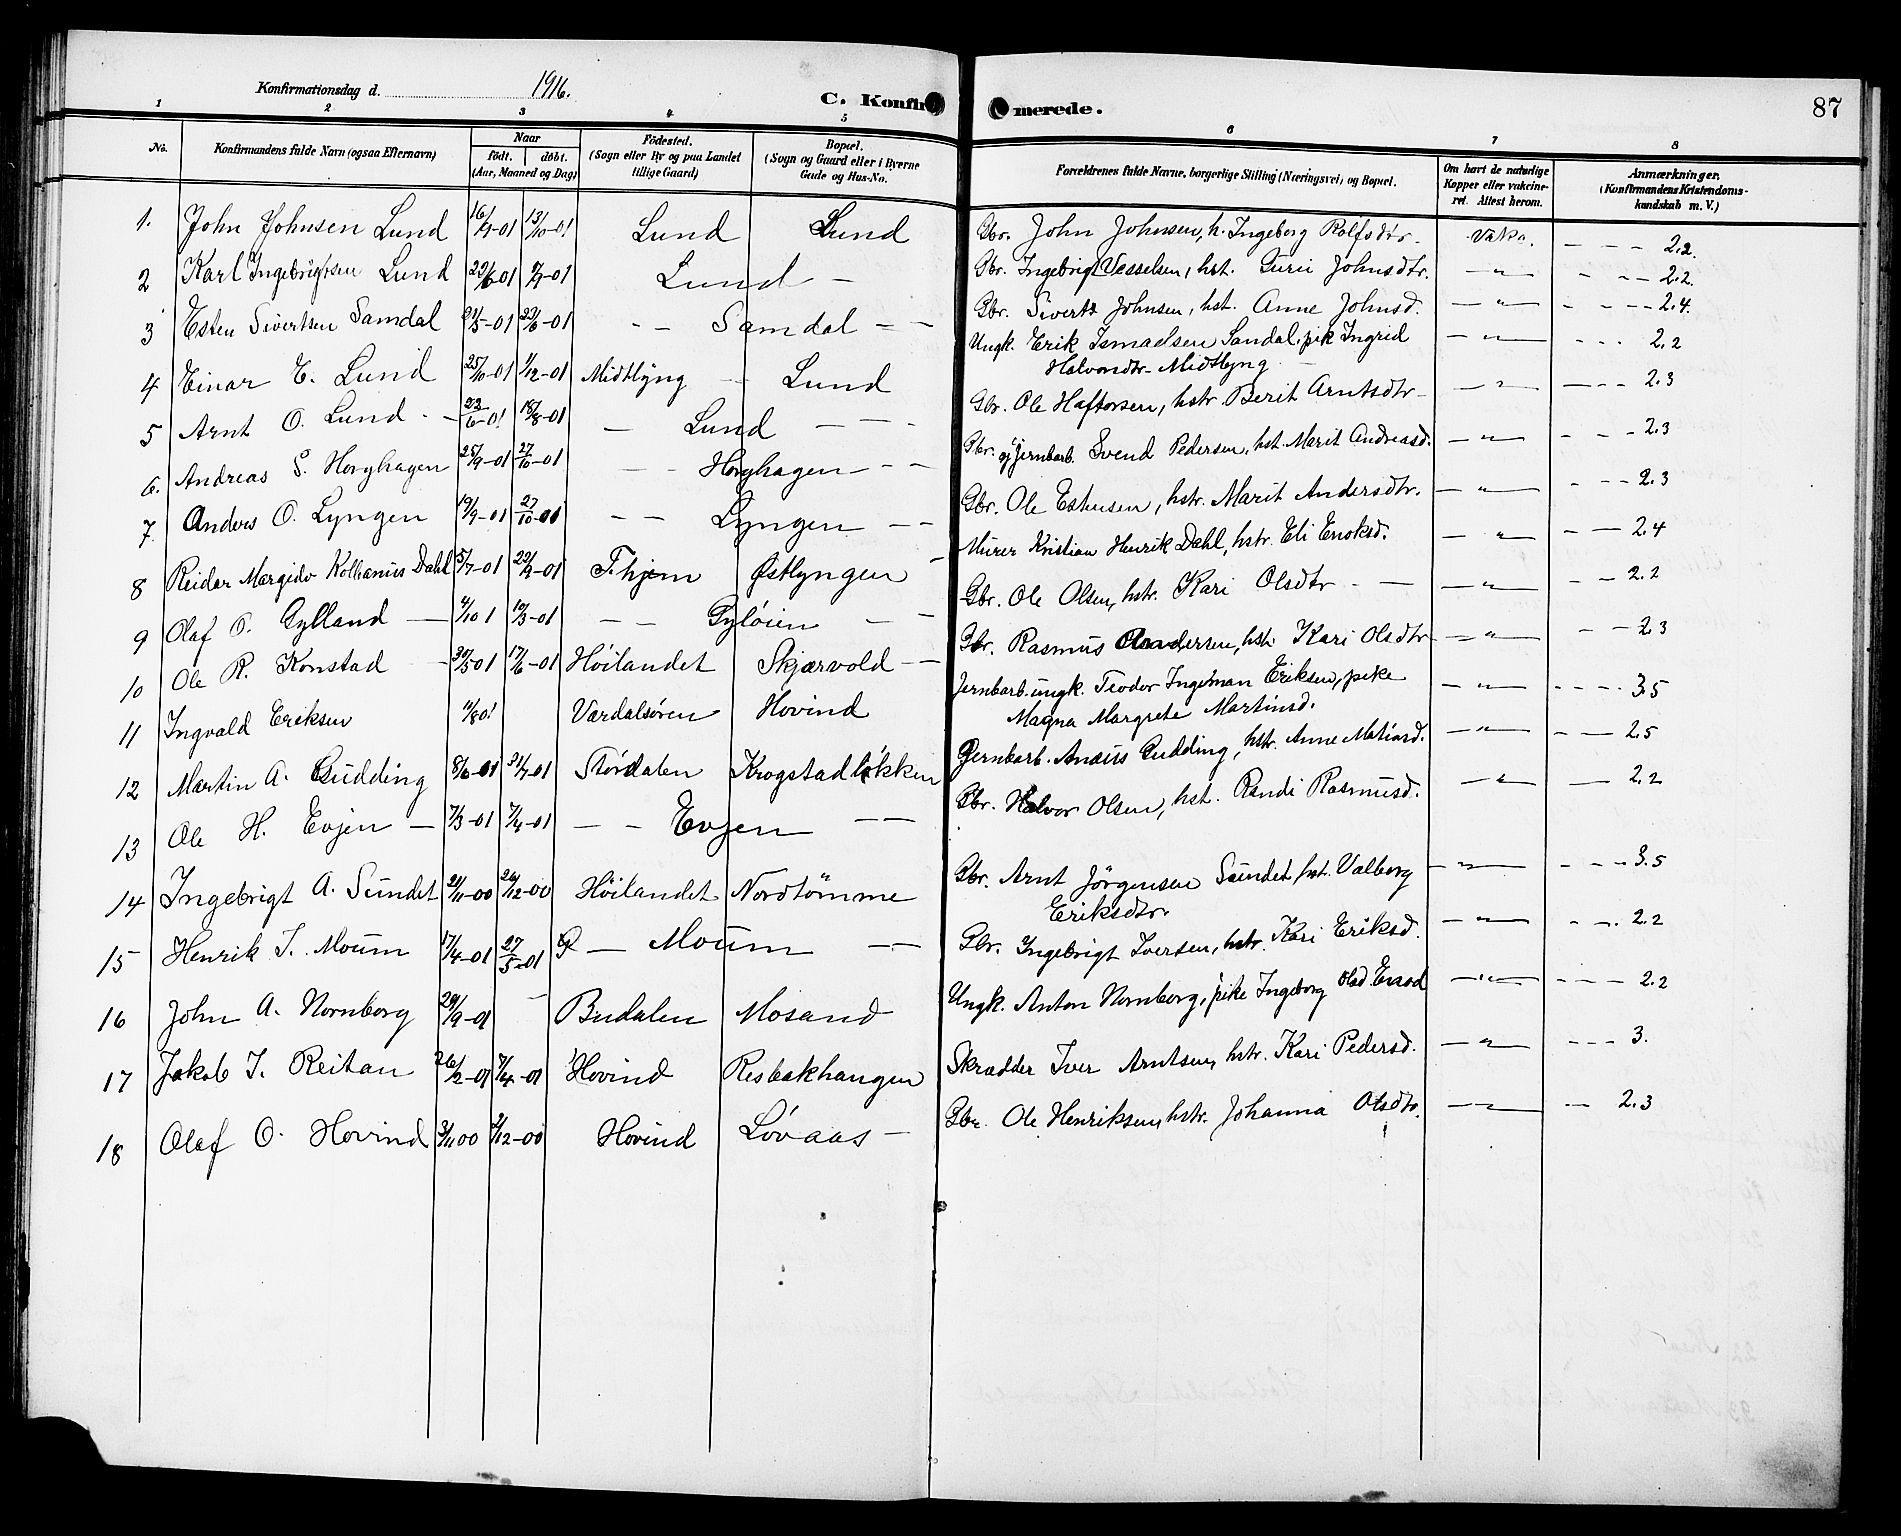 Konfirmationsdag d. 1916.
C. Konfir merede. 87
1 2 3 4 5 6 7 8
No. Konfirmandens fulde Navn (ogsaa Efternavn) Naar født. døbt. (Aar, Maaned og Dag) Fødested. (Sogn eller By og paa Landet tillige Gaard) Bopæl. (Sogn og Gaard eller i Byerne Gade og Hus-No. Forældrenes fulde Navne, borgerlige Stilling (Næringsvei) og Bopæl. Om havt de naturlige Kopper eller vakcineret. Attest herom. Anmærkninger. (Konfirmandens Kristendomskundskab m. V.)
1. John Johnsen Lund 16/9-01 13/10-01 Lund Lund Gbr. John Johnsen, h. Ingeborg Rolfsdtr. Vakc. - - - 2.2.
2 Karl Ingebrigtsen Lund 23/6 01 9/9-01 Lund - Gbr. Ingebrigt Vesselsen, hst. Guri Johnsdtr. - " - - - - 2.2.
3 Esten Sivertsen Samdal 21/5-01 23/6-01 - - Samdal - - Gbr. Sivert Johnsen, hst. Anne Johnsd. - " - - - - 2.4.
4 Einar E. Lund 25/10-01 1/12-01 Midtlyng - Lund Ungk. Erik Ismaelsen Sandal, pik Ingrid - " - - - - 2.2
Halvorsdtr. Midtlyng
5 Arnt O. Lund - 23/6-01 18/8-01 - Lund - - - Gbr. Ole Haftorsen, hstr. Berit Arntsdtr - " - - - - 2.3
6. Andreas S. Horghagen 25/9-01 27/10-01 - - Horghagen - - - Gbr. og Jernbarb. Svend Pedersen, hst. Marit Andreasd. - " - - - - 2.3
7. Anders O. Lyngen 19/9-01 27/10-01 - - Lyngen - - Gbr. Ole Estensen, hstr. Marit Andersdtr. - " - - - - 2.3
8 Reidar Margido Dahl 5/7-01 22/9-01 Tr.hjem Østlyngen Murer Kristian Henrik Dahl, hstr. Eli Enoksd. - " - - - 2.4
9 Olaf O. Gylland - 4/10 1 10/3-01 - - Gyløien - - Gbr. Ole Olsen, hstr. Kari Olsdtr - - - " - - - 2.2
10 Ole R. Konstad - 30/5 01 17/6-01 Høilandet Skjærvold - - Gbr. Rasmus Andersen, hstr Kari Olsdtr - " - - - 2.3
11 Ingvald Eriksen 11/8 01 Værdalsøren Hovind Jernbarb. ungk. Teodor Ingelman Eriksen, pike - " - - - - - 3.5
Magna Margrete Martinsd.
12 Martin A. Gudding 8/6-01 31/7-01 Størdalen Krogstadløkken Jernbarb. Ansius Gudding, hstr. Anne Matiasd. - " - - - 2.5
13 Ole H. Evjen - 7/3-01 7/4-01 - - Evjen - - Gbr. Halvor Olsen, hst. Randi Rasmusd. - " - - 2.2
14 Ingebrigt A. Sundet 21/11-00 26/12-00 Høilandet Nordtømme Gbr. Arnt Jörgensen Sundet, hst. Valborg - " - - - - 3.5
Eriksdtr.
15 Henrik I. Moum 17/4-01 27/5-01 - Moum - - Gbr. Ingebrigt Iversen, hstr. Kari Eriksd. - " - - - . 2.2
16 John A. Nornborg 29/9-01 - Budalen Mosand Ungk. Anton Nornborg, pike Ingeborg Olsd. - " - - - - 2.2
17 Jakob I. Reitan 26/2-01 7/4-01 Hovind Resbakhaugen Skrædder Iver Arntsen, hstr. Kari Pedersd. - " - - - - 3.
18 Olaf O. Hovind 3/11 00 2/12-00 Hovind Løvaas - Gbr. Ole Henriksen, hstr. Johanna Olsdtr. - " - - 2.3